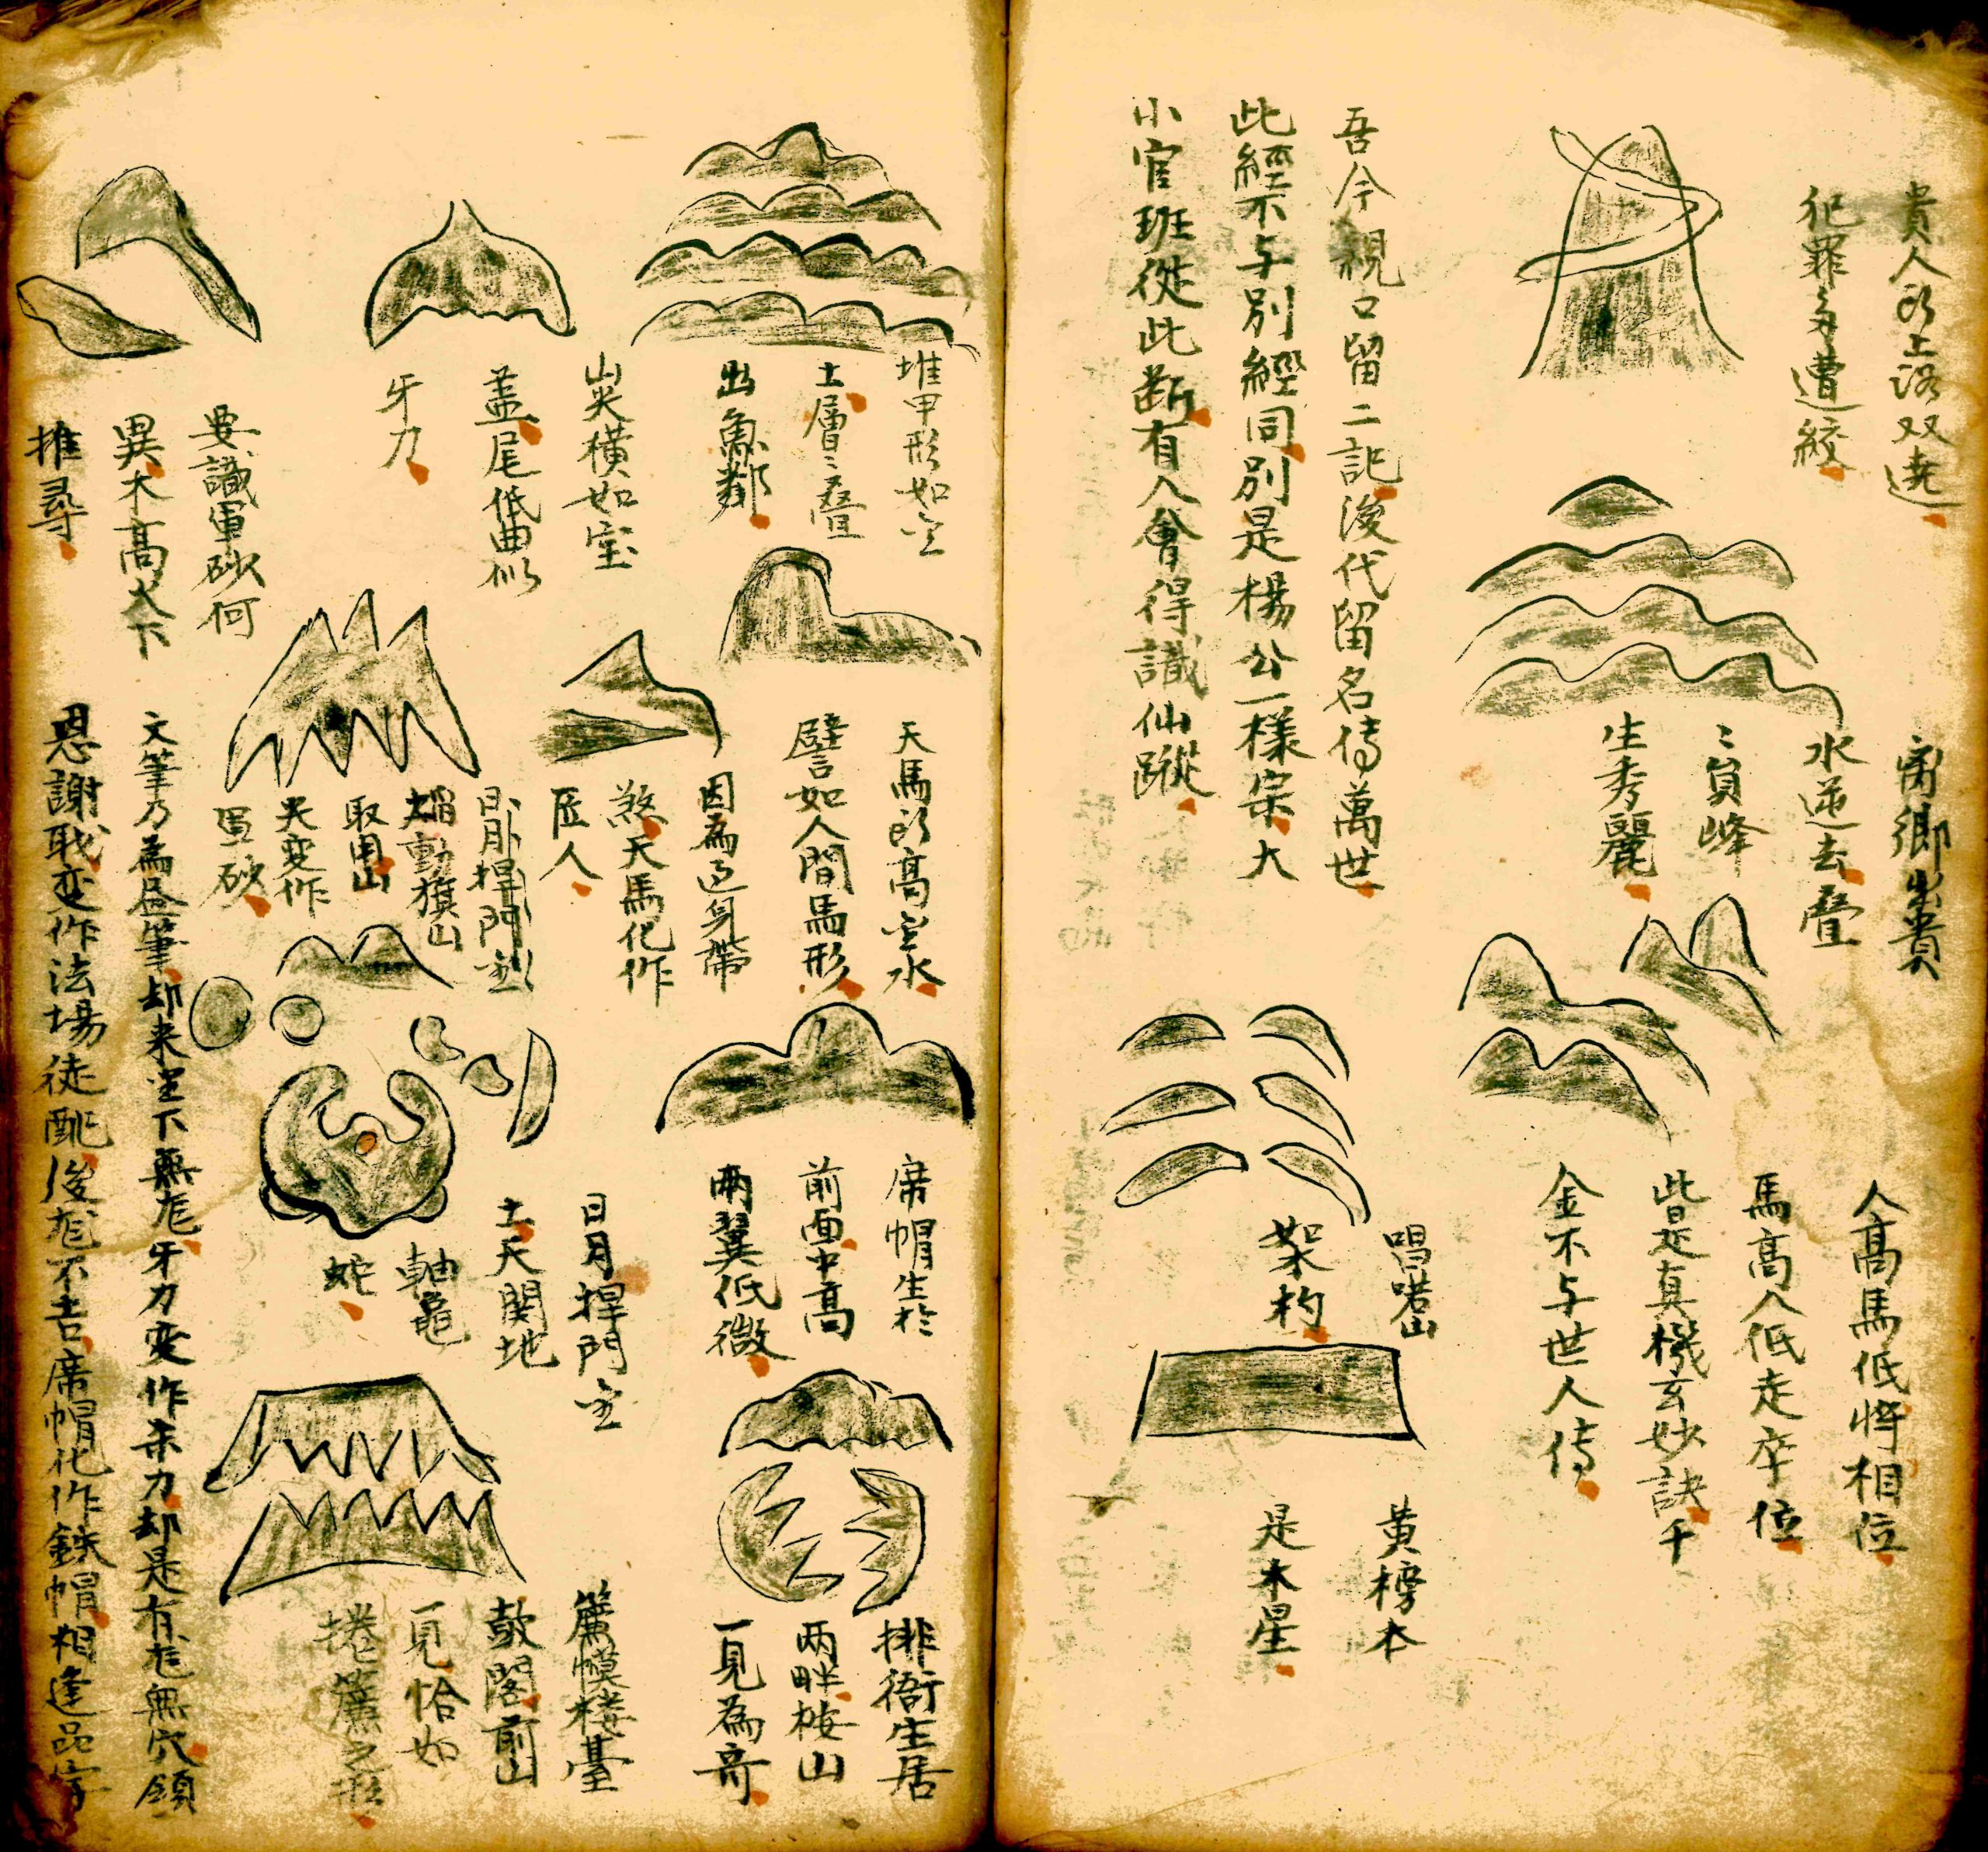 貴人形上洛双遶
犯罪多遭絞
离鄉出貴
水逆去疊
〻貟峰
生秀麗
人高馬低将相位
馬高人低走卒位
皆是真機玄妙訣千
金不与世人傳
吾今親口留二記後代留名傳萬世
此經不与別經同別是楊公一樣宗大
小官班從此断有人會得識仙蹤
唱喏山
架杓
黄榜本
是木星
堆甲形如金
土層〻疊
出魚鄰
天馬形高金水
譬如人間馬形
席帽生於
前面中高
兩翼低微
排衙生居
两畔桉山
一見為奇
山夾横如金
盖尾低曲似
牙刀
因為過身帶
煞天馬化作
匠人
日月捍門金
土天関地
軸龜
蛇
簾幙楼臺
鼓閣前山
一見恰如
捲簾之形
要識軍砂何
異木高火下
推尋
日月捍門到
焰動旗山
取用山
夾変作
軍砂
文筆乃為昼筆却来堂下無尨牙刀变作杀刀却是有尨無穴領
恩謝戝变作法場徒配後尨不吉席帽化作鉄帽相逢品字